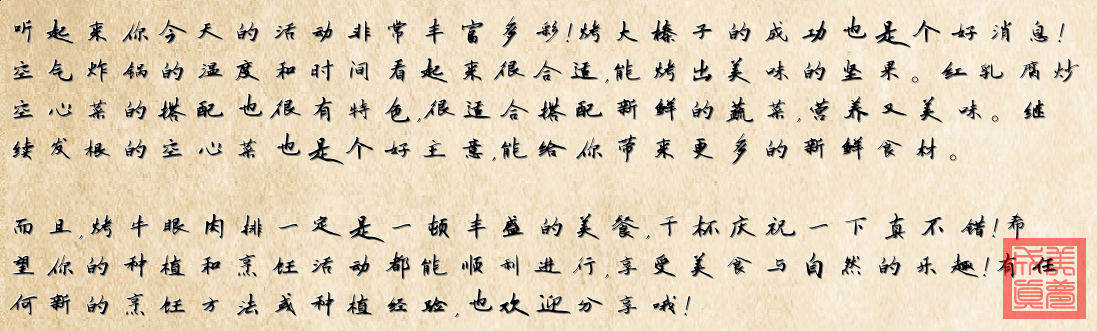 听起来你今天的活动非常丰富多彩!烤大榛子的成功也是个好消息!
空气炸锅的温度和时间看起来很合适,能烤出美味的坚果。红乳腐炒
空心菜的搭配也很有特色,很适合搭配新鲜的蔬菜,营养又美味。继
续发根的空心菜也是个好主意,能给你带来更多的新鲜食材。
而且,烤牛眼肉排一定是一顿丰盛的美餐,干杯庆祝一下真不错!希
望你的种植和烹饪活动都能顺利进行,享受美食与自然的乐趣!有任
何新的烹饪方法或种植经验,也欢迎分享哦!